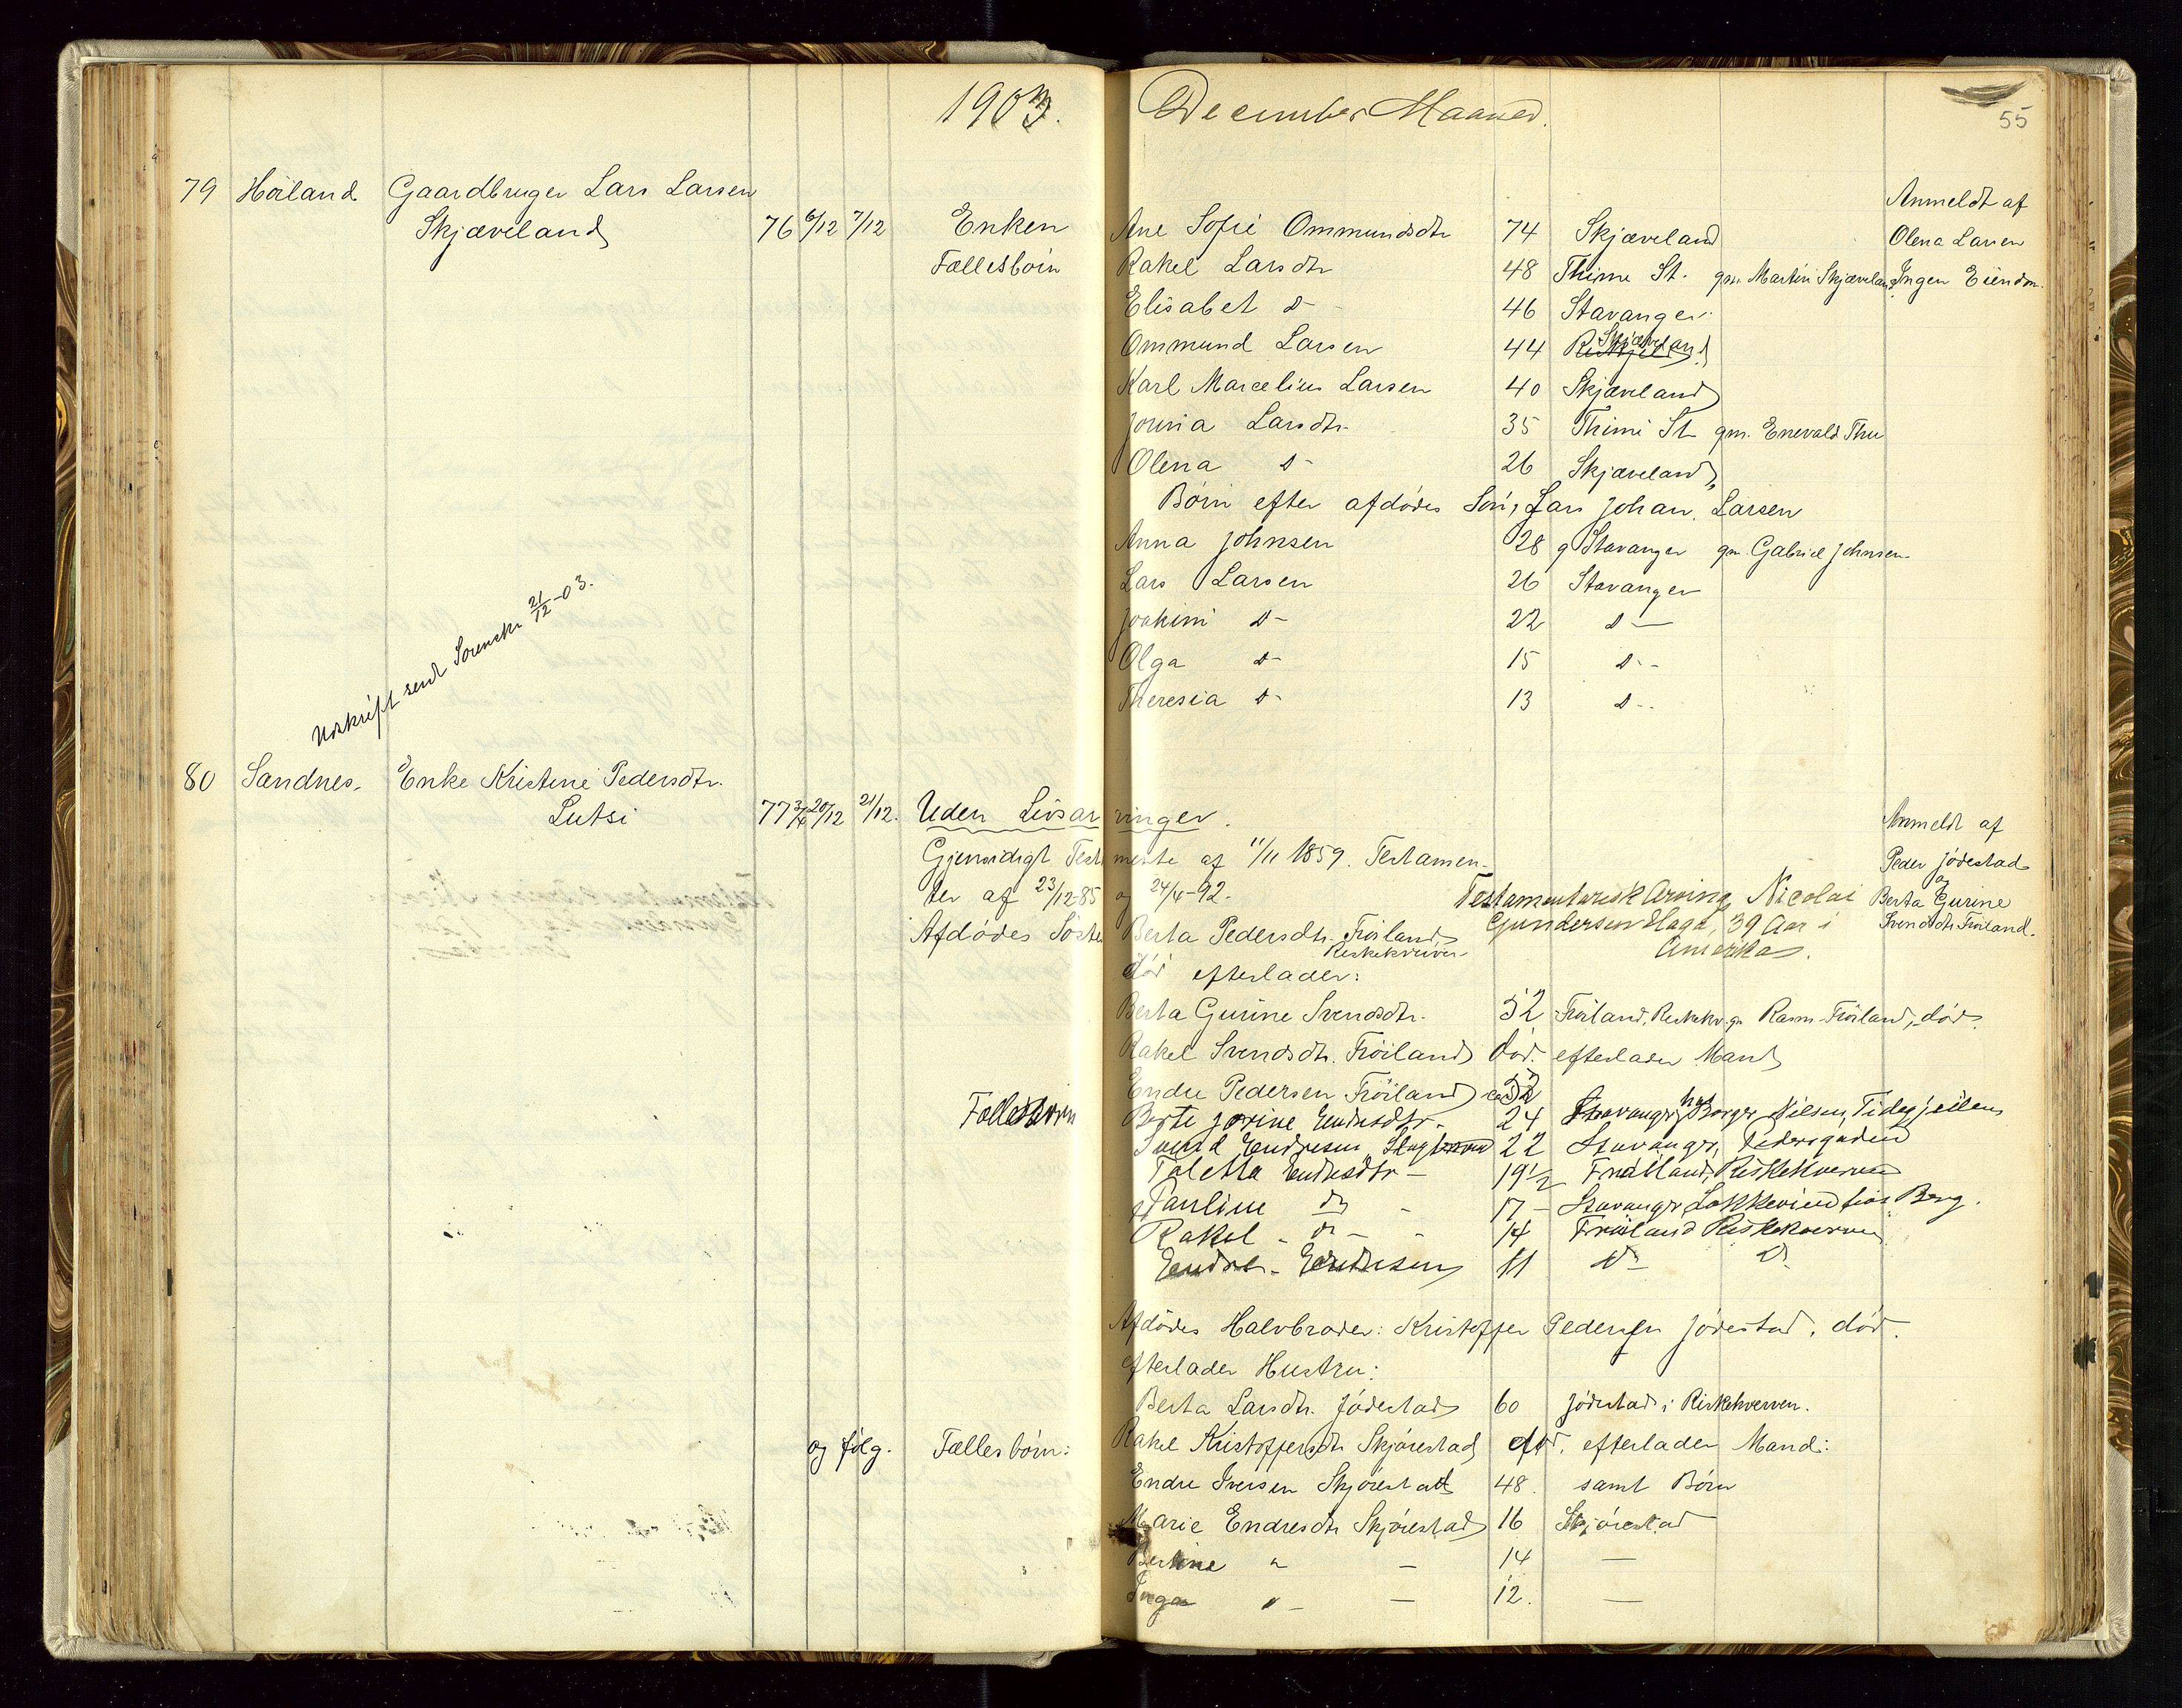 1903. December Maaned.
55
79 Høiland Gaardbruger Lars Larsen
Skjæveland 76 6/12 7/12 Enken Ane Sofie Ommundsdtr 74 Skjæveland
Anmeldt af
Olena Larsen
Ingen Eiendom.
Fællesbørn Rakel Larsdtr 48 Thime St. gm. Martin Skjæveland
Elisabet D- 46 Stavanger.
Ommund Larsen 44 Skjæveland
Karl Marcelius Larsen 40 Skjæveland
Larsdtr. 35 Thime St gm. Enevald Thu
Olena D- 26 Skjæveland
Børn efter afdødes Søn, Lars Johan Larsen
Anna Johnsen 28 g Stavanger gm. Gabriel Johnsen
Lars Larsen 26 Stavanger
Joakim D- 22 D-
Olga D- 15 D-
Theresia D- 13 D-
Udskrift send Sorenskr 21/12-03.
80 Sandnes. Enke Kristine Pedersdtr.
Lutsi 77 3/4 20/12 21/12. Uden Livsarvinger.
Anmeldt af
Peder Jødestad
og
Berta Gurine
Svendsdtr Frøiland.
Gjensidigt Testamente af 11/11 1859. Testamen-
ter af 23/12-85 og 24/4-92.
Testamentarisk Arving Nicolai
Gundersen Haga, 39 Aar i
Amerika.
Afdødes Søster Berta Pedersdtr. Frøiland
Riskekverven
død efterlader:
Berta Gurine Svendsdtr. 52 Frøiland, Riskekv. gm Rasm. Frøiland, død.
Rakel Svendsdtr. Frøiland død. efterlader Mand
Endre Pedersen Frøiland 52
Fællesbørn Berte Jorine Endresdtr. 24 Stavanger, hos Borger Nilsen, Tidegjeilen
Svend Endresen 22 Stavanger, Pedersgaden
Taletta Endresdtr - 19 1/2 Frøiland, Riskekverven
Pauline D - 17 - Stavanger, Løkkeveien hos Berg.
Rakel - D - - 14 Frøiland Riskekverven
Endre - Endresen 11 D- D
Afdødes Halvbroder: Kristoffer Pedersen Jødestad, død.
efterlader Hustru:
Berta Larsdtr. Jødestad 60 Jødestad i Riskekverven.
og følg. Fællesbørn: Rakel Kristoffersdtr Skjørestad død. efterlader Mand:
Endre Iversen Skjørestad 48. samt Børn
Marie Endresdtr Skjørestad 16 Skjørestad
Bertine " - 14 —
Inga " - — 12. —